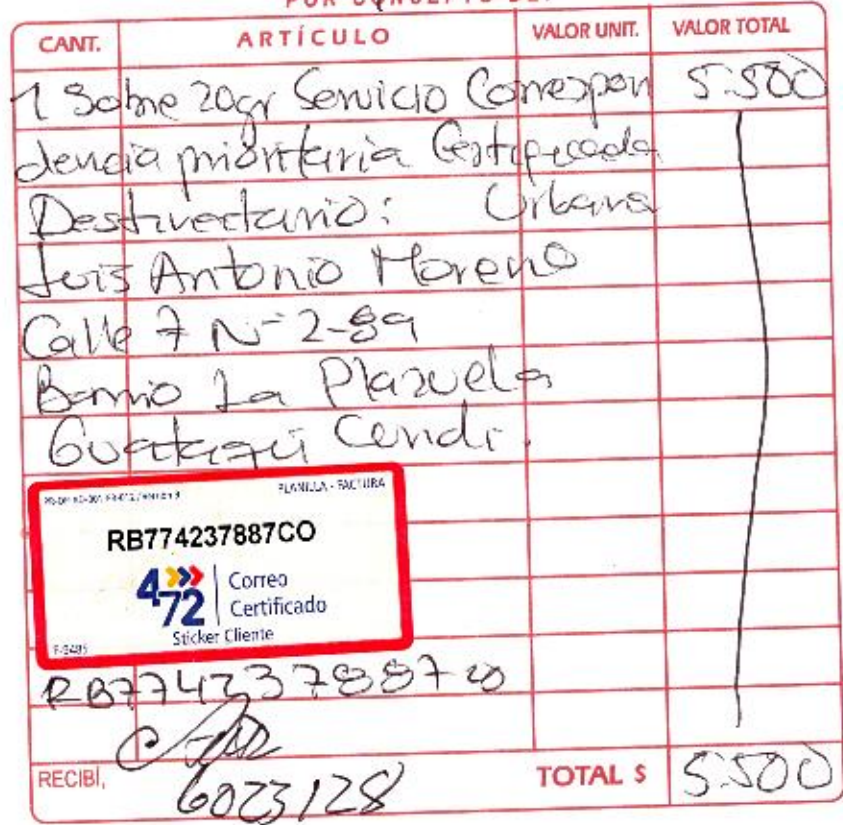 POR CONCEPTO DE:
CANT. ARTÍCULO VALOR UNIT. VALOR TOTAL
1 Sobre 20gr Servicio Correspon 5.500
dencia prioritaria Certificada
Destinatario: Urbana
Luis Antonio Moreno
Calle 7 N- 2-89
Barrio La Plazuela
Guataquí Cundi.
PLANILLA - FACTURA
RB774237887CO
472 Correo
Certificado
Sticker Cliente
RB774237887co
RECIBÍ, 6023128 TOTAL $ 5.500